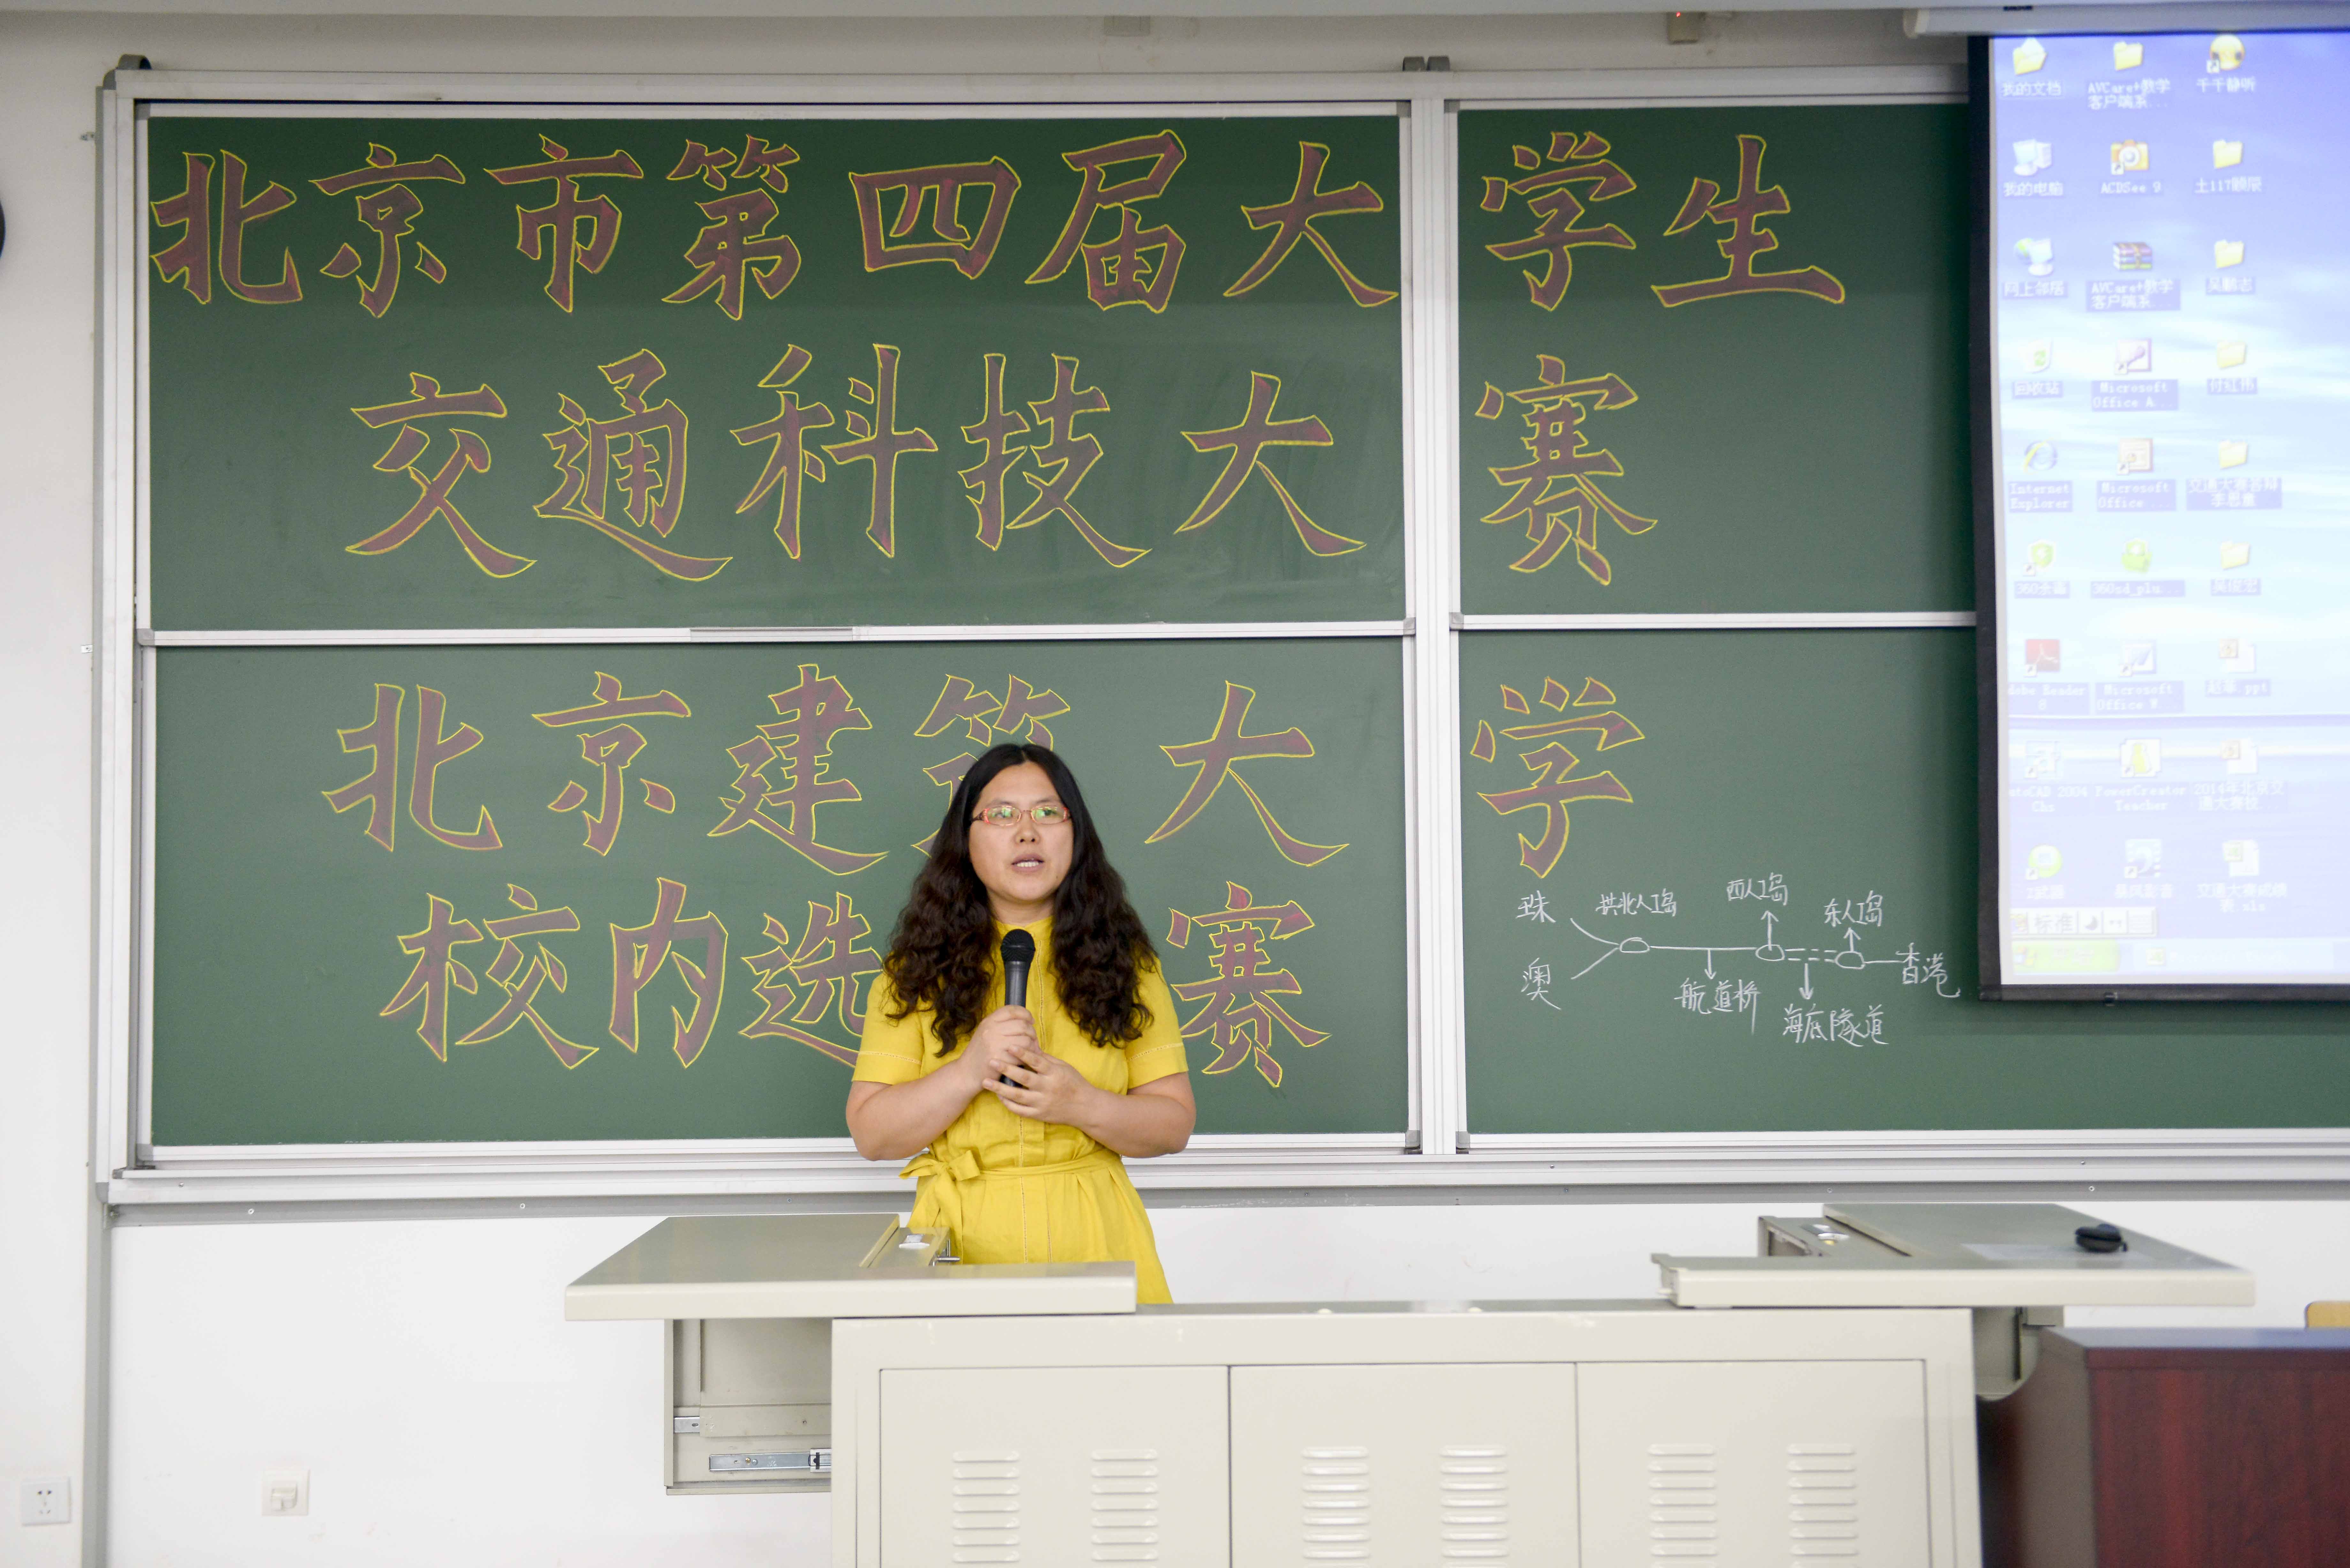 北京市第四届大学生
交通科技大赛
北京建筑大学
校内选赛
珠
拱北人工岛
西人工岛
东人工岛
澳
航道桥
海底隧道
香港
我的文档
AVCare+教学客户端系...
千千静听
我的电脑
ACDSee 9
网上邻居
AVCare+教学客户端系
回收站
Microsoft Office A
Internet Explorer
Microsoft Office ...
360杀毒
360sd_plu...
dobe Reader 8
Microsoft Office W
.ppt
utoCAD 2004 Chs
PowerCreator Teacher
2014年北京交通大赛校
暴风影音
标准